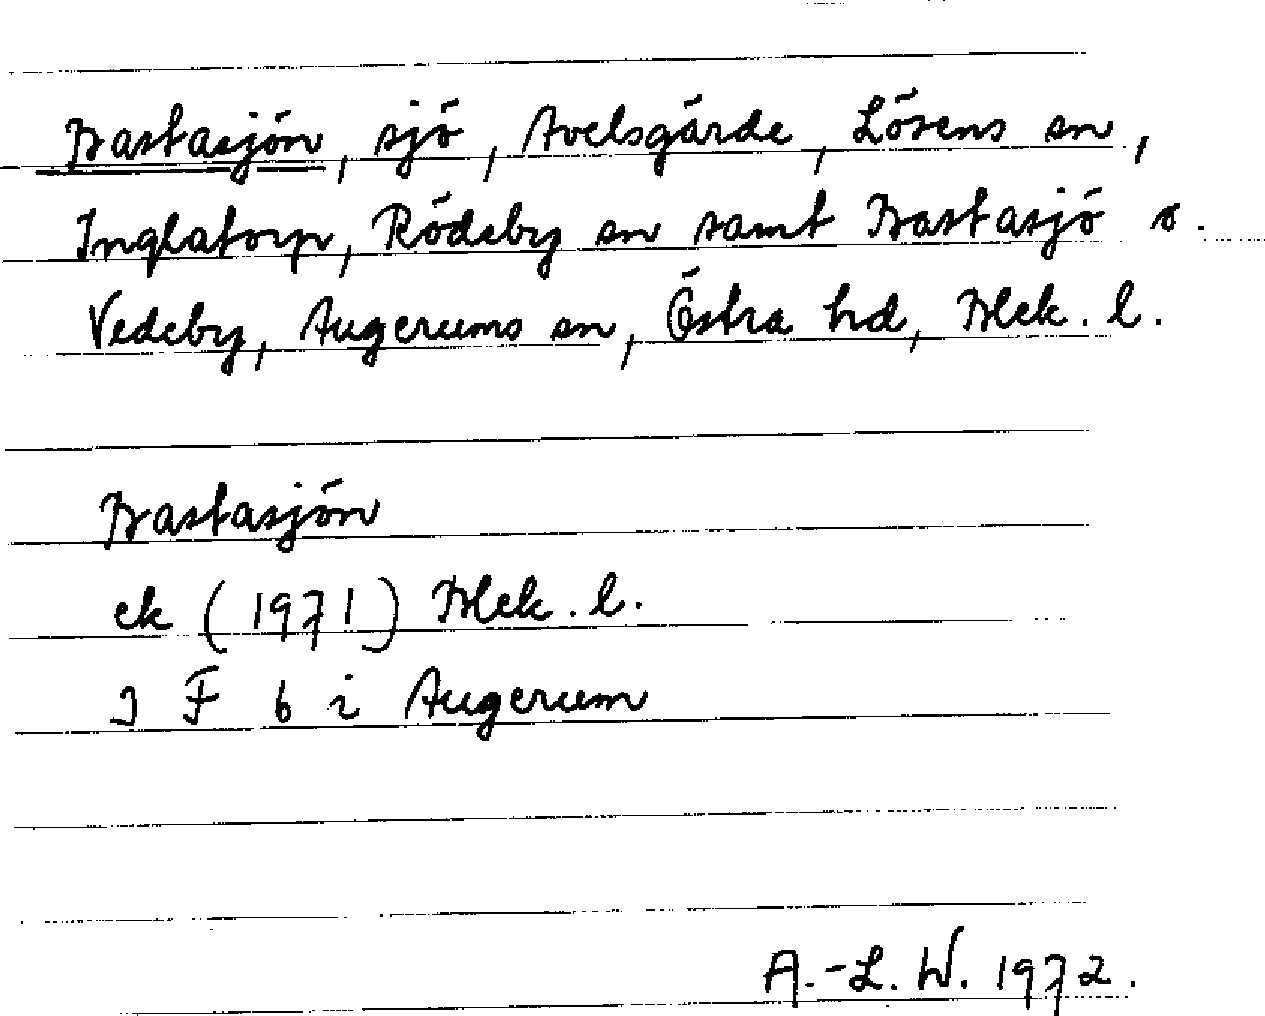 Bastasjön, sjö, Avelsgärde, Lösens sn,
Inglatorp, Rödeby sn samt Bastasjö o.
Vedeby, Augerums sn, Östra hd, Blek. l.
Bastasjön
ek (1971) Blek. l.
3 F 6 i Augerum
A.-L. W. 1972.